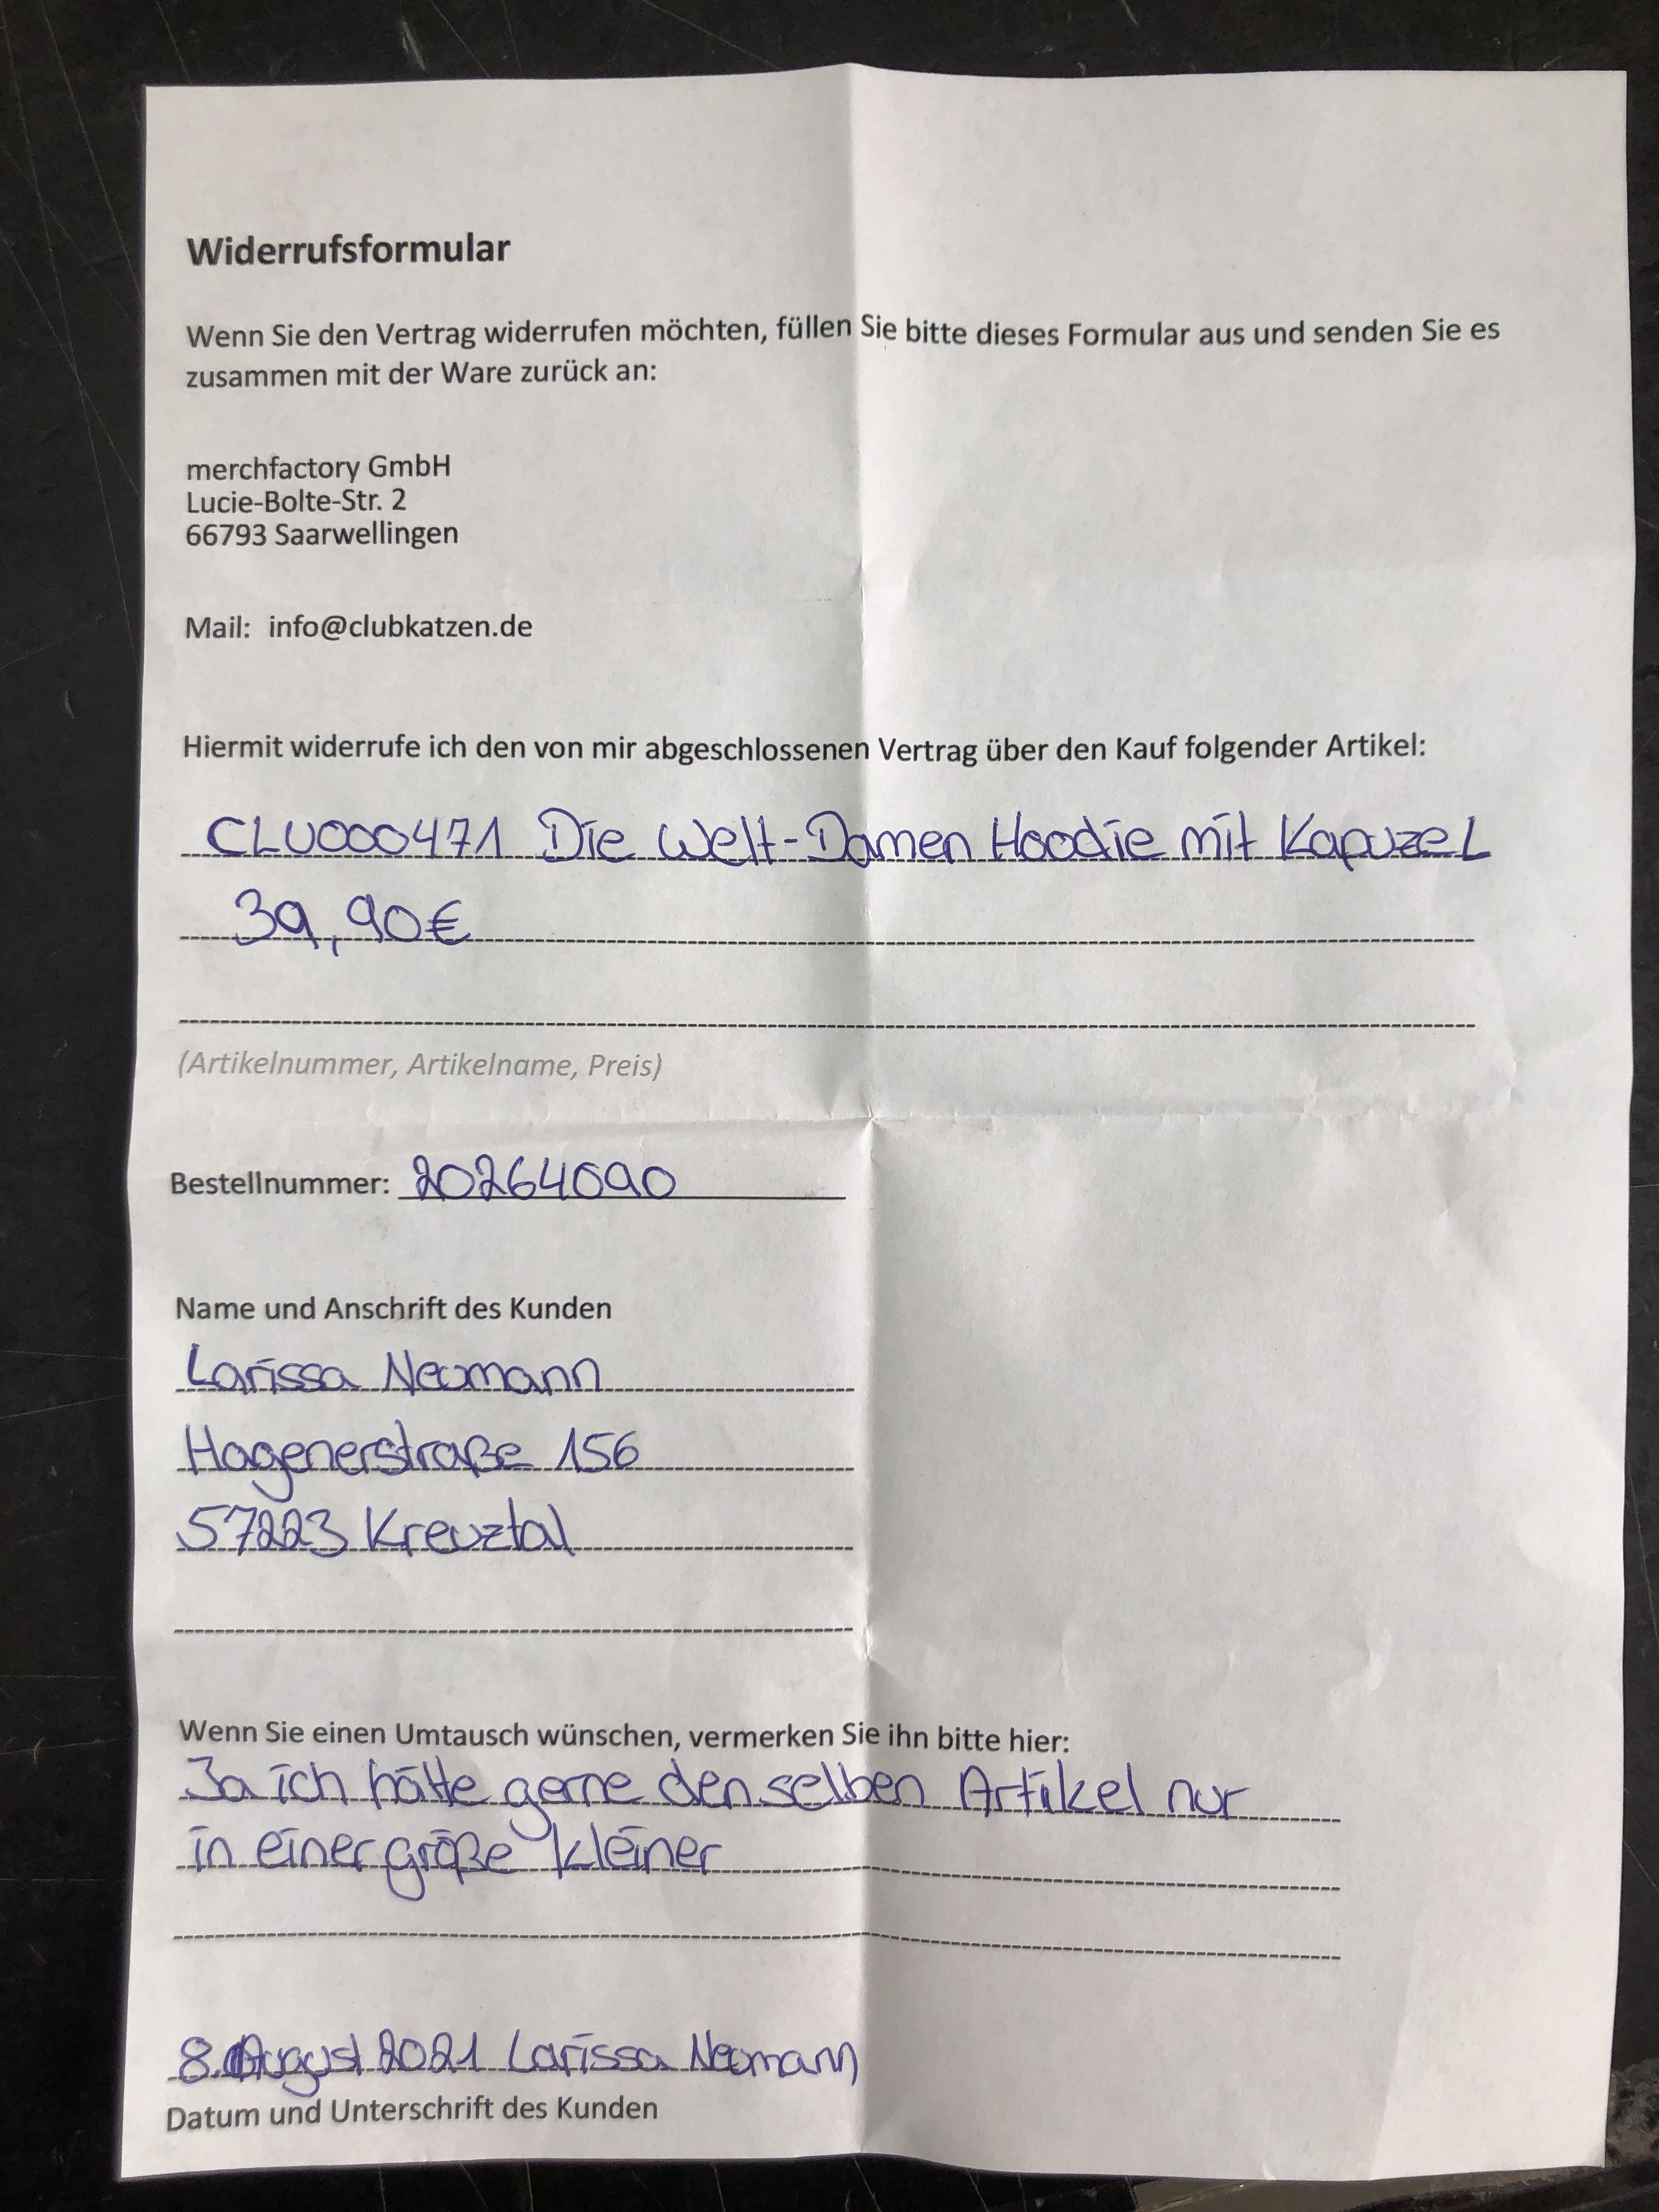 Widerrufsformular
Wenn Sie den Vertrag widerrufen möchten, füllen Sie bitte dieses Formular aus und senden Sie es
zusammen mit der Ware zurück an:
merchfactory GmbH
Lucie-Bolte-Str. 2
66793 Saarwellingen
Mail: info@clubkatzen.de
Hiermit widerrufe ich den von mir abgeschlossenen Vertrag über den Kauf folgender Artikel:
CLU000471 Die Welt-Damen Hoodie mit Kapuze L
39,90€
(Artikelnummer, Artikelname, Preis)
Bestellnummer: 20264090
Name und Anschrift des Kunden
Larissa Neumann
Hagenerstraße 156
57223 Kreuztal
Wenn Sie einen Umtausch wünschen, vermerken Sie ihn bitte hier:
Ja ich hätte gerne den selben Artikel nur
in einer größe kleiner
8. August 2021 Larissa Neumann
Datum und Unterschrift des Kunden